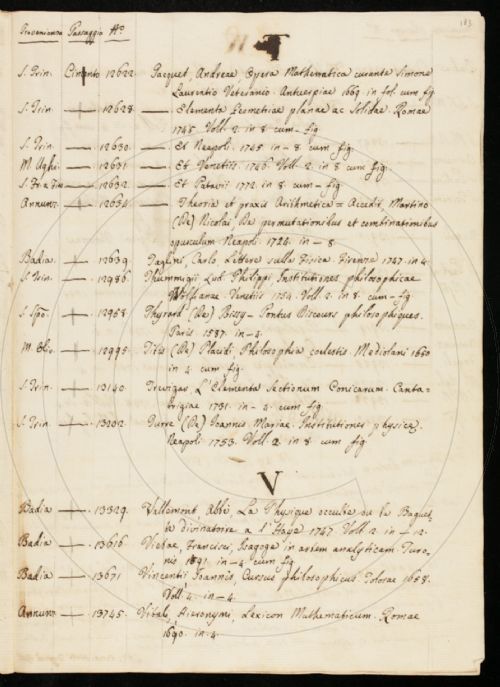 183
Provenienza Passaggio N.o
T
S. Trin. Cimento 12622. Tacquet, Andreae, Opera Mathematica curante Simone
Laurentio Veterano. Antuerpiae 1669. in fol. cum fig.
S. Trin. — 12628. — Elementa Geometriae planae ac Solidae. Romae
1745. Voll. 2. in 8. cum fig.
S. Trin. — 12630. — Et Neapoli. 1745 in – 8. cum fig.
M. Ughi. — 12631 — Et Venetiis. 1746. Voll. 2. in 8. cum fig.
12632. — Et Patavii 1772. in 8. cum – fig.
Annunz. — 12634. — Theoria et praxis Arithmetica = Accedit Martino
(De) Nicolai, De permutationibus et combinationibus
opusculum. Neapoli. 1724. in – 8.
Badia. — 12639. Taglini, Carlo, Lettere sulla Fisica. Firenze 1747. in 4.
S. Trin. — 12986. Thummigii Lud. Philippi, Institutiones philosophicae
Wolfianae. Venetiis 1754. Voll. 2. in 8. cum – fig.
S. Spo. — 12958. Thyard (De) Bissy – Pontus Discours philosophiques.
Paris 1587. in – 4.
12995. Titis (De) Placidi, Philosophia coelestis. Mediolani 1650
in 4. cum fig.
S. Trin. — 13140. Trevigar L. Elementa Sectionum Conicarum. Canta-
brigiae 1731. in – 4. cum fig.
S. Trin. — 13202. Turre (De) Joannis Mariae. Institutiones physicae.
Neapoli 1753. Voll. 2. in 8. cum fig.
V
Badia — 13329. Vallemont Abbé, La Physique occulte ou la Baguet-
te divinatoire a l'Haye 1747. Voll. 2. in – 12.
Badia — 13616. Vietae, Francisci, Isagoge in artem analyticam. Turo-
nis 1591. in – 4. cum fig.
Badia — 13671. Vincentii Joannis, Cursus philosophicus. Tolosae 1658.
Voll. 4. in – 4.
Annunz. — 13745. Vitali, Hieronymi, Lexicon Mathematicum. Romae
1690. in – 4.